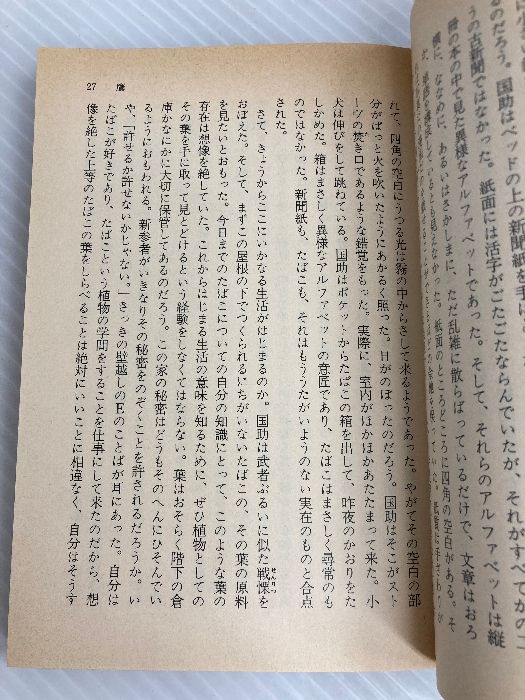 のだろう。国助はベッドの上の新聞紙を手に
うの古新聞ではなかった。紙面には活字がごたごたならんでいたが、それがすべてかの一
冊の本の中で見た異様なアルファベットであった。そして、それらのアルファベットは縦
横に、ななめに、あるいはさかさまに、ただ乱雑に散らばっているだけで、文章はおろ
紙面のところどころに四角の空白がある。そ
れて、四角の空白にうつる光は霧の中からさして来るようであった。やがてその空白の部
分がぱっと火を吹いたようにあかるく照った。日がのぼったのだろう。国助はそこがスト
ーヴの焚き口であるような錯覚をもった。実際に、室内がほかほかあたたまって来た。小
犬は伸びをして跳ねている。国助はポケットからたばこの箱を出して、昨夜のかおりをた
しかめた。箱はまさしく異様なアルファベットの意匠であり、たばこはまさしく尋常のも
のではなかった。新聞紙も、たばこも、それはもううたがいようのない実在のものと合点
された。
さて、きょうからここにいかなる生活がはじまるのか。国助は武者ぶるいに似た戦慄を
せんりつ
おぼえた。そして、まずこの屋根の下でつくられるにちがいないたばこの、その葉の原料
を見たいとおもった。今日までのたばこについての自分の知識にとって、このような葉の
存在は想像を絶していた。これからはじまる生活の意味を知るために、ぜひ植物としての
その葉を手に取って見とどけるという経験をしなくてはならない。葉はおそらく階下の倉
庫かなにかに大切に保管してあるのだろう。この家の秘密はどうもそのへんにひそんでい
るようにおもわれる。新参者がいきなりその秘密をのぞくことを許されるだろうか。い
や、「許せるか許せないかじゃない。」さっきの壁越しのEのことばが耳にあった。自分は
たばこが好きであり、たばこという植物の学問をすることを仕事にして来たのだから、想
像を絶した上等のたばこの葉をしらべることは絶対にいいことに相違なく、自分はそうす
27 鷹